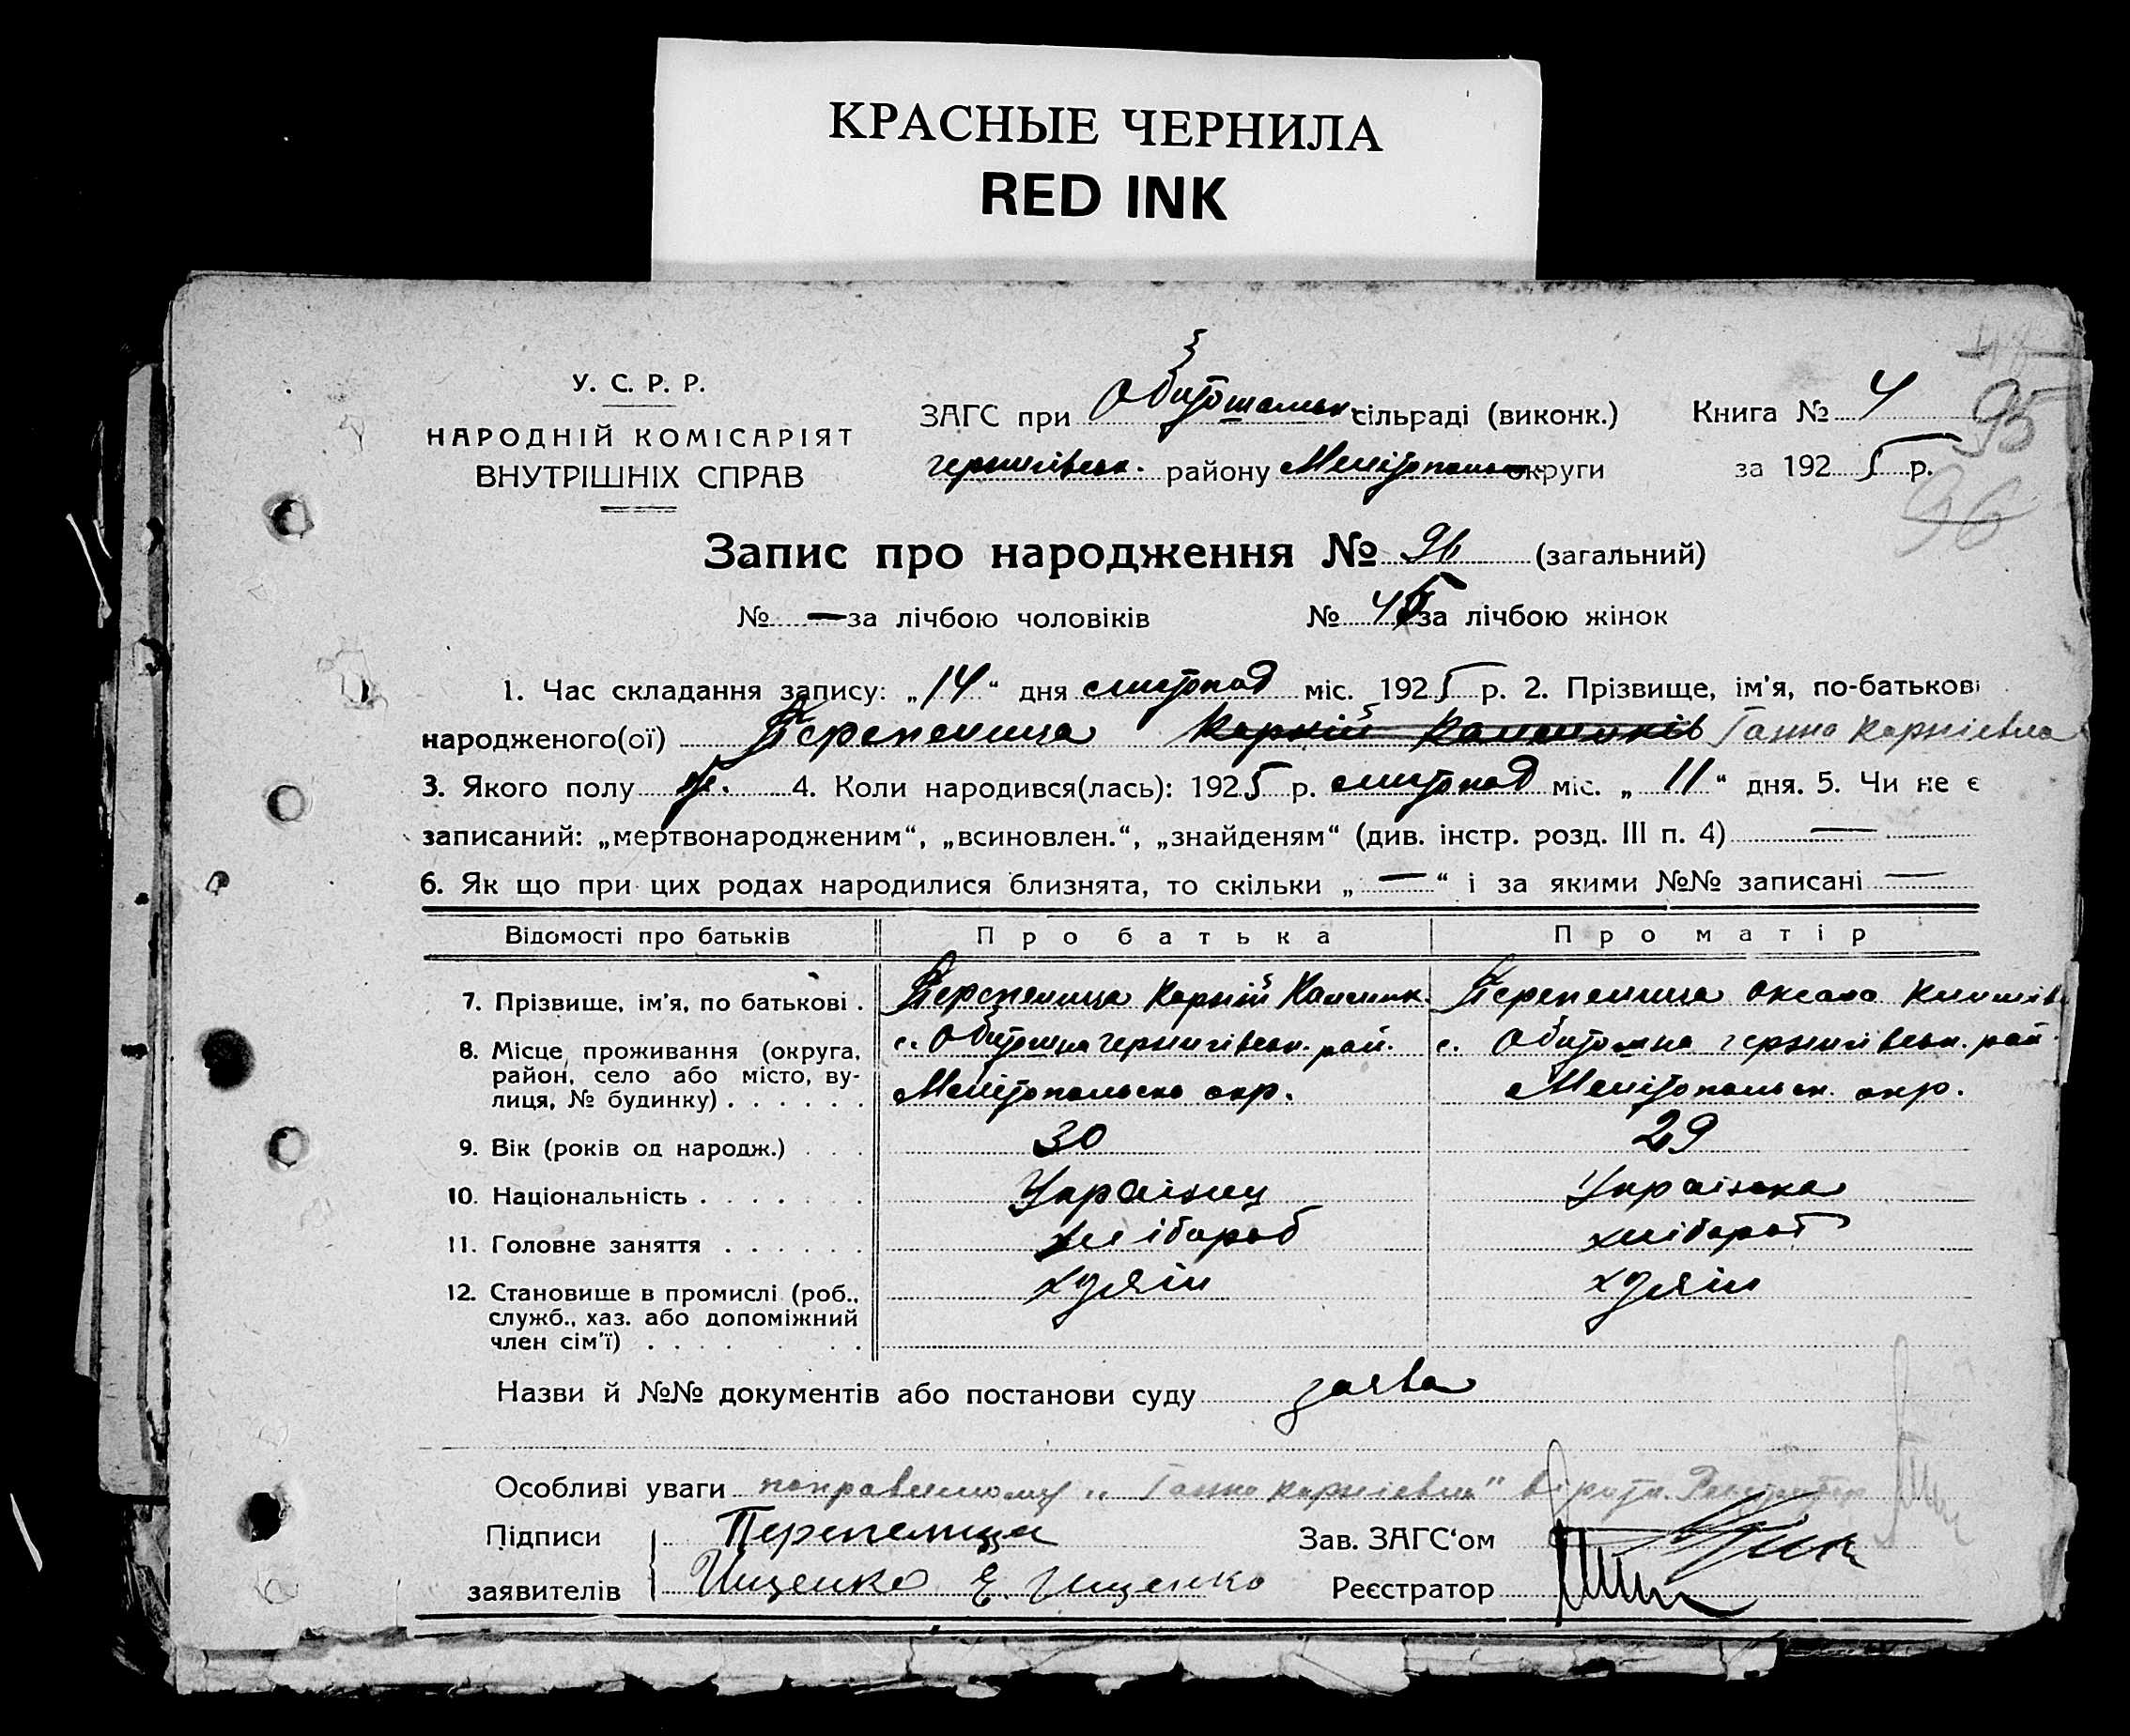 КРАСНЫЕ ЧЕРНИЛА
RED INK
У. С. Р. Р.
НАРОДНІЙ КОМІСАРІЯТ
ВНУТРІШНІХ СПРАВ
ЗАГС при Обитошанськ. сільраді (виконк.)
чернигівськ. району Мелітопольськ округи
Книга № 4
за 1925 р.
95
96
Запис про народження № 96 (загальний)
№ — за лічбою чоловіків № 45 за лічбою жінок
1. Час складання запису: „14“ дня листопад міс. 1925 р. 2. Прізвище, ім'я, по-батькові
народженого(ої) Перепелица Корній Ганна Корніевна
3. Якого полу ж. 4. Коли народився(лась): 1925 р. листопад міс. „11“ дня. 5. Чи не є
записаний: „мертвонародженим“, „всиновлен.“, „знайденям“ (див. інстр. розд. III п. 4) —
6. Як що при цих родах народилися близнята, то скільки „—“ і за якими №№ записані —
Відомості про батьків Про батька Про матір
7. Прізвище, ім'я, по батькові . Перепелица Корній Перепелица Оксана
8. Місце проживання (округа, район, село або місто, вулиця, № будинку) . . . . . .
с. Обиточна чернигівськ. рай.
Мелітопольска окр.
с. Обиточна чернигівськ. рай.
Мелітопольск. окр.
9. Вік (років од народж.) . . . 30 29
10. Національність . . . . . . . Українец Українка
11. Головне заняття . . . . . . хлібороб хлібороб
12. Становище в промислі (роб., служб., хаз. або допоміжний член сім'ї) . . . . . .
хдяін хдяін
Назви й №№ документів або постанови суду заява
Особливі уваги поправленому „Ганна Корніевна“ вірити.
Підписи заявителів
Перепелица
Ищенко Е. Ищенко
Зав. ЗАГС'ом
Реєстратор